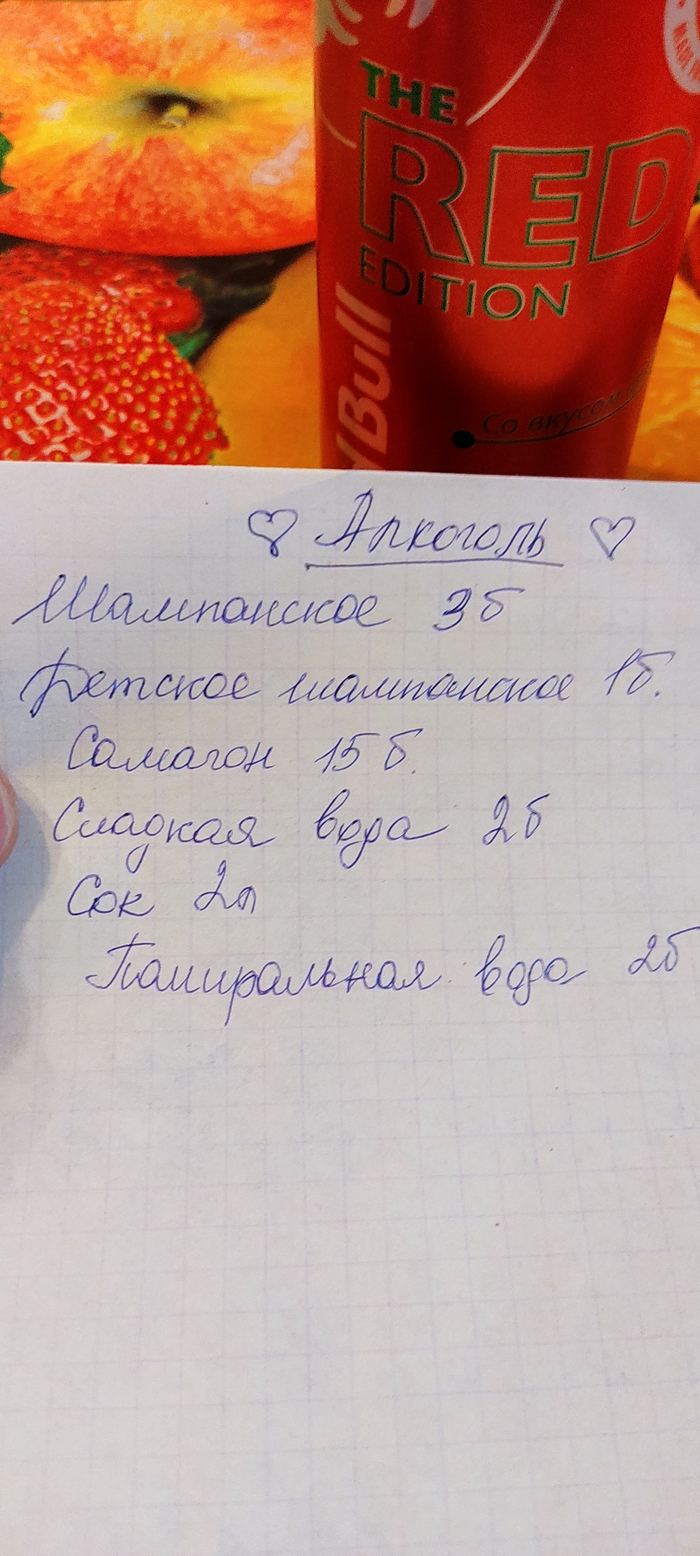 THE
RED
EDITION
Bull
Со вкусом
♡ Алкоголь ♡
Шампанское 3б
Детское шампанское 1б.
Самагон 15б.
Сладкая вода 2б
Сок 2л
вода 2б